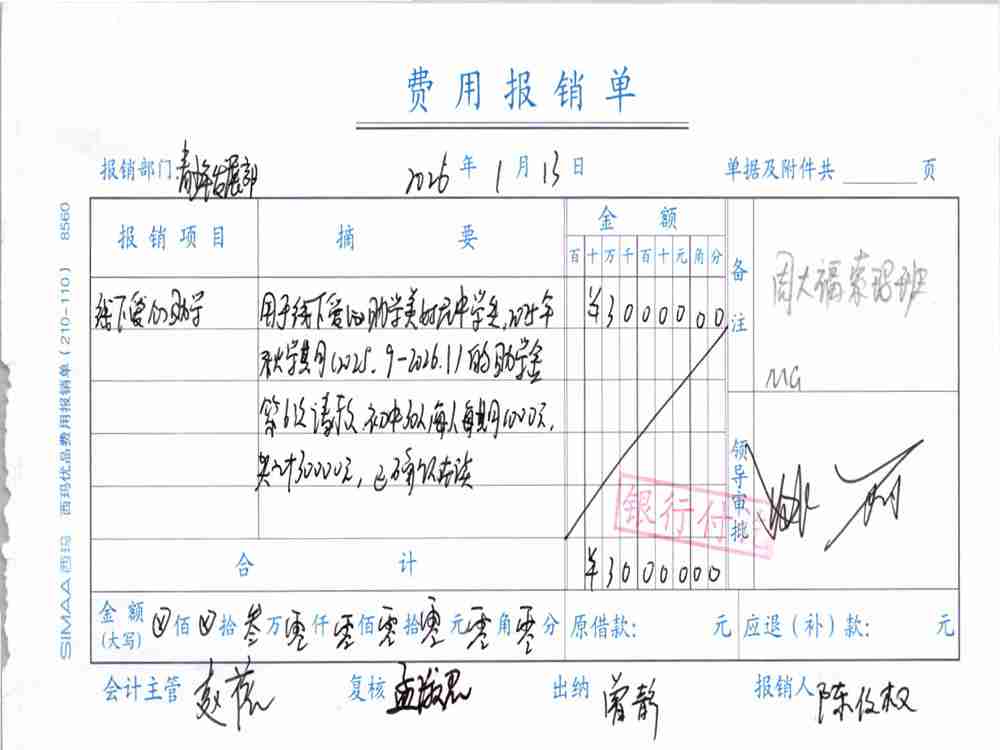 费用报销单
报销部门 青年发展部 2026年1月13日 单据及附件共 页
报销项目 摘要 金额 备注
百十万千百十元角分
线下爱心助学 用于线下爱心助学美姑民中学生,2025年 ¥3000000 周大福荣昭班
秋学期(2025.9-2026.1)的助学金
第6次请款,初中30人每人每期1000元,
共计30000元,已确认在读
领导审批
银行付
合计 ¥3000000
金额(大写) 佰 拾 叁万零仟零佰零拾零元零角零分 原借款: 元 应退(补)款: 元
会计主管 复核 出纳 曾静 报销人 陈位权
SIMAA西玛 西玛优品费用报销单(210-110) 8560